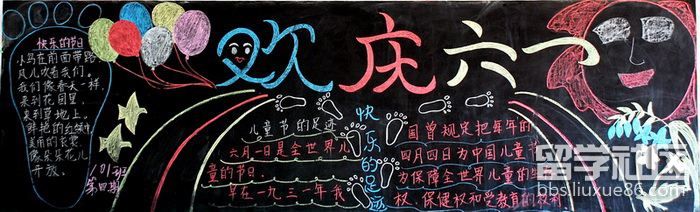 欢庆六一
快乐的节日
小鸟在前面带路
风儿吹着我们。
我们像春天一样，
来到花园里，
来到草地上。
鲜艳的红领巾
美丽的衣裳，
像朵朵花儿
开放。
101班
第四期
儿童节的足迹
六月一日是全世界儿
童的节日。
早在一九三一年我
快乐的足迹
国曾规定把每年的
四月四日为中国儿童节
为保障全世界儿童的生
权、保健权和受教育的权利
留学社区
bbs.liuxue86.com